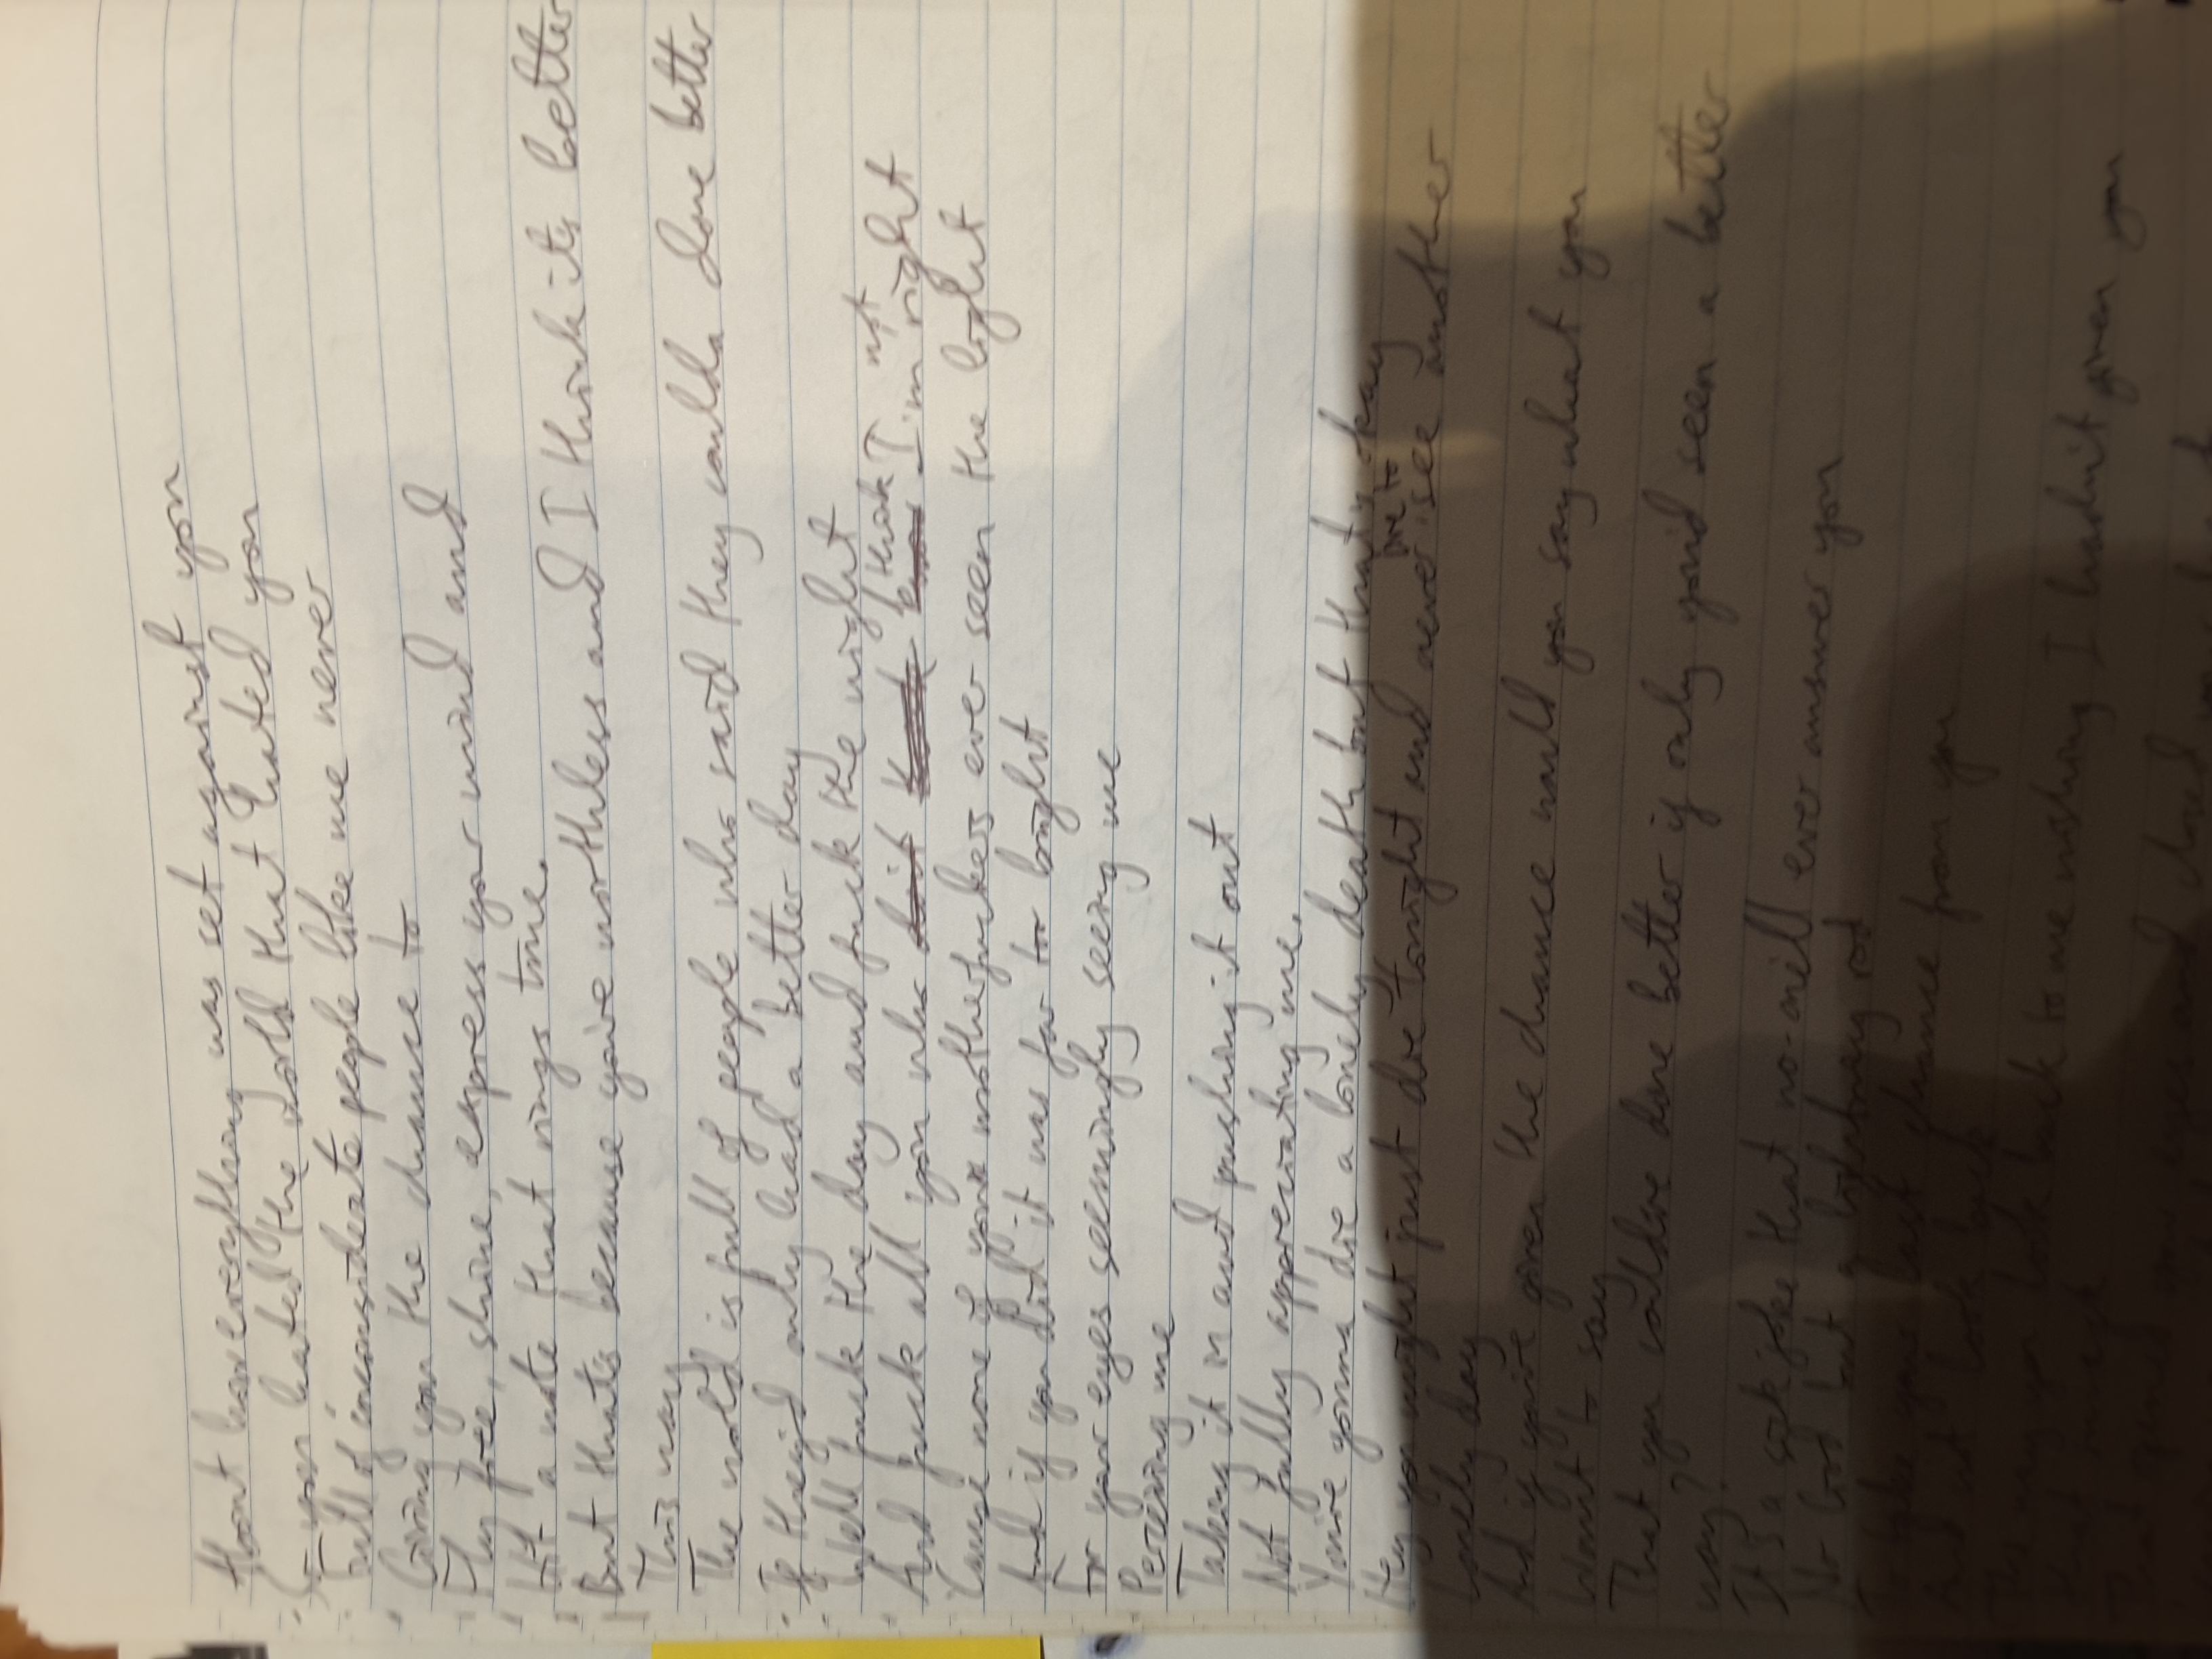 About how everything was set against you
So you hated the world that hated you
Full of inconsiderate people like me never
Giving you the chance to
Fly free, shine, express your mind and
Hit a note that rings true.
But that's because you're worthless and I think its better
This way
The wold is full of people who said they coulda done better
If they'd only had a better day
Well fuck the day and fuck the night
And fuck all you who think I'm not right
'Cause none of you motherfuckers ever seen the light
And if you did it was far too bright
For your eyes seemingly seeing me
Perceiving me
Taking it in and pushing it out
Not fully appreciating me.
You're gonna die a lonely death but that's okay
Hey you might just die tonight and never live to see another
Lonely day
And if you're given the chance would you say what you
Want to say
That you could've done better if only you'd seen a better
way?
It's a sick joke that no-one'll ever answer you
No God but a lightning rod
To take your last chance from you
And not look back
The way you look back to me wishing I hadn't given you
That
That opened your eyes and closed your